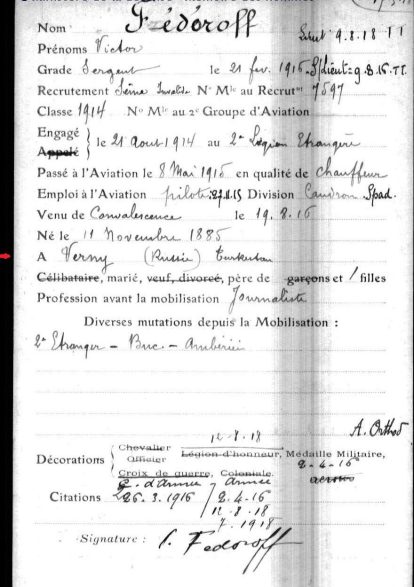 Nom Fédoroff Lieut 9.8.18 TT
Prénoms Victor
Grade Sergent le 21 fev. 1916 - S/Lieut = 9.8.16.TT.
Recrutement Seine N° Mle au Recrut 7597
Classe 1914 N° Mle au 2e Groupe d'Aviation
Engagé
Appelé } le 21 aout 1914 au 2e Légion Etrangère
Passé à l'Aviation le 8 Mai 1915 en qualité de chauffeur
Emploi à l'Aviation pilote 27.11.15 Division Caudron - Spad.
Venu de Convalescence le 19.8.16
Né le 11 Novembre 1885
A Verny (Russie) Turkestan
Célibataire, marié, veuf, divorcé, père de garçons et 1 filles
Profession avant la mobilisation Journaliste
Diverses mutations depuis la Mobilisation :
2e Etranger - Buc - Ambérieu
A. Orthod
12-8.18
Décorations { Chevalier Officier Légion d'honneur, Médaille Militaire,
2-4-16
Croix de guerre, Coloniale.
C. d'Armée 7 Armée
Citations 26.3.1916 2.4-16
12-8-18
7.1918
Signature : Fedoroff